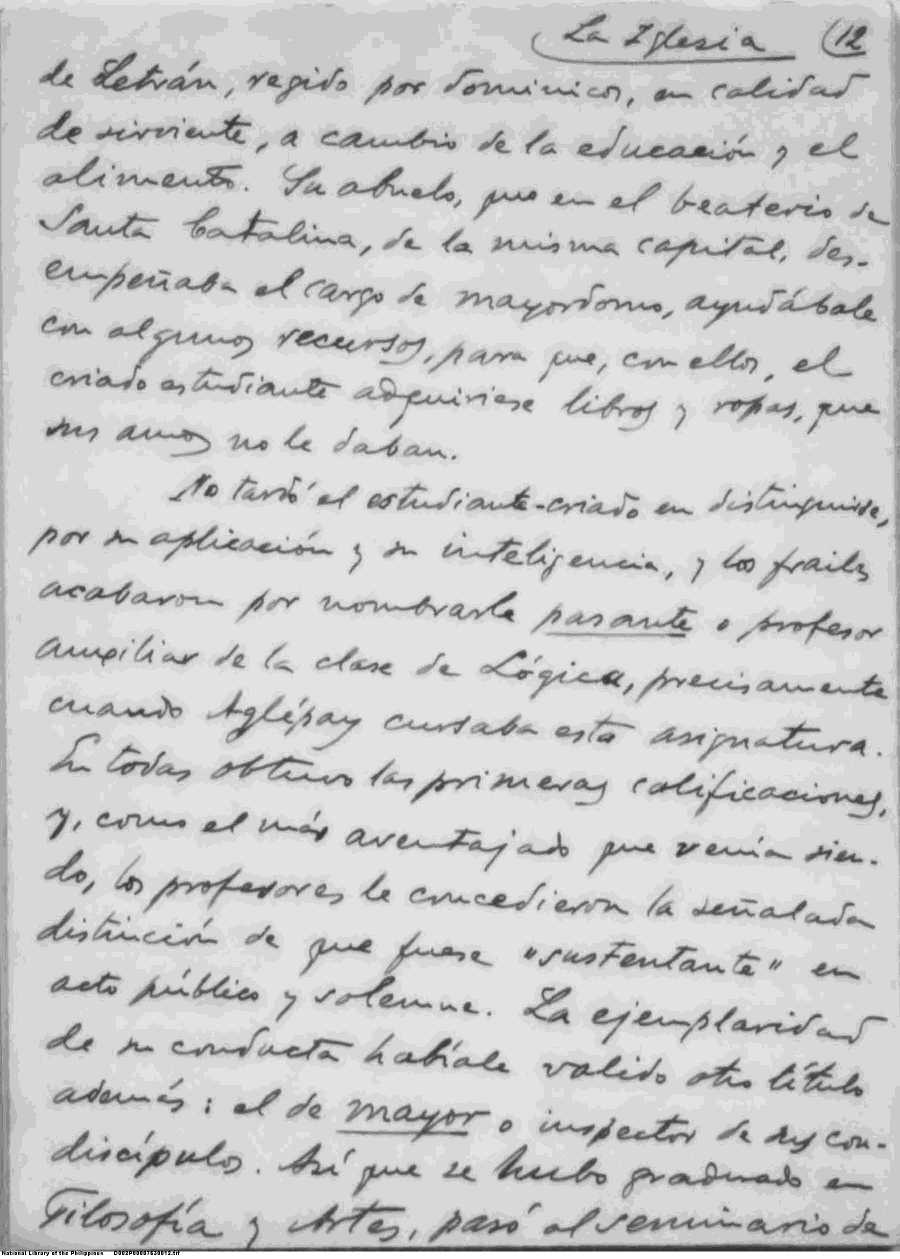 La Iglesia (12
de Letrán, regido por dominicos, en calidad
de sirviente, a cambio de la educación y el
alimento. Su abuelo, que en el beaterio de
Santa Catalina, de la misma capital, des-
empeñaba el cargo de mayordomo, ayudábale
con algunos recursos, para que, con ellos, el
criado estudiante adquiriese libros y ropas, que
sus amos no le daban.
No tardó el estudiante-criado en distinguirse,
por su aplicación y su inteligencia, y los frailes
acabaron por nombrarle pasante o profesor
auxiliar de la clase de Lógica, precisamente
cuando Aglípay cursaba esta asignatura.
En todas obtuvo las primeras calificaciones,
y, como el más aventajado que venía sien-
do, los profesores le concedieron la señalada
distinción de que fuese "sustentante" en
acto público y solemne. La ejemplaridad
de su conducta habíale valido otro título
además: el de mayor o inspector de sus con-
discípulos. Así que se hubo graduado en
Filosofía y Artes, pasó al seminario de
National Library of the Philippines